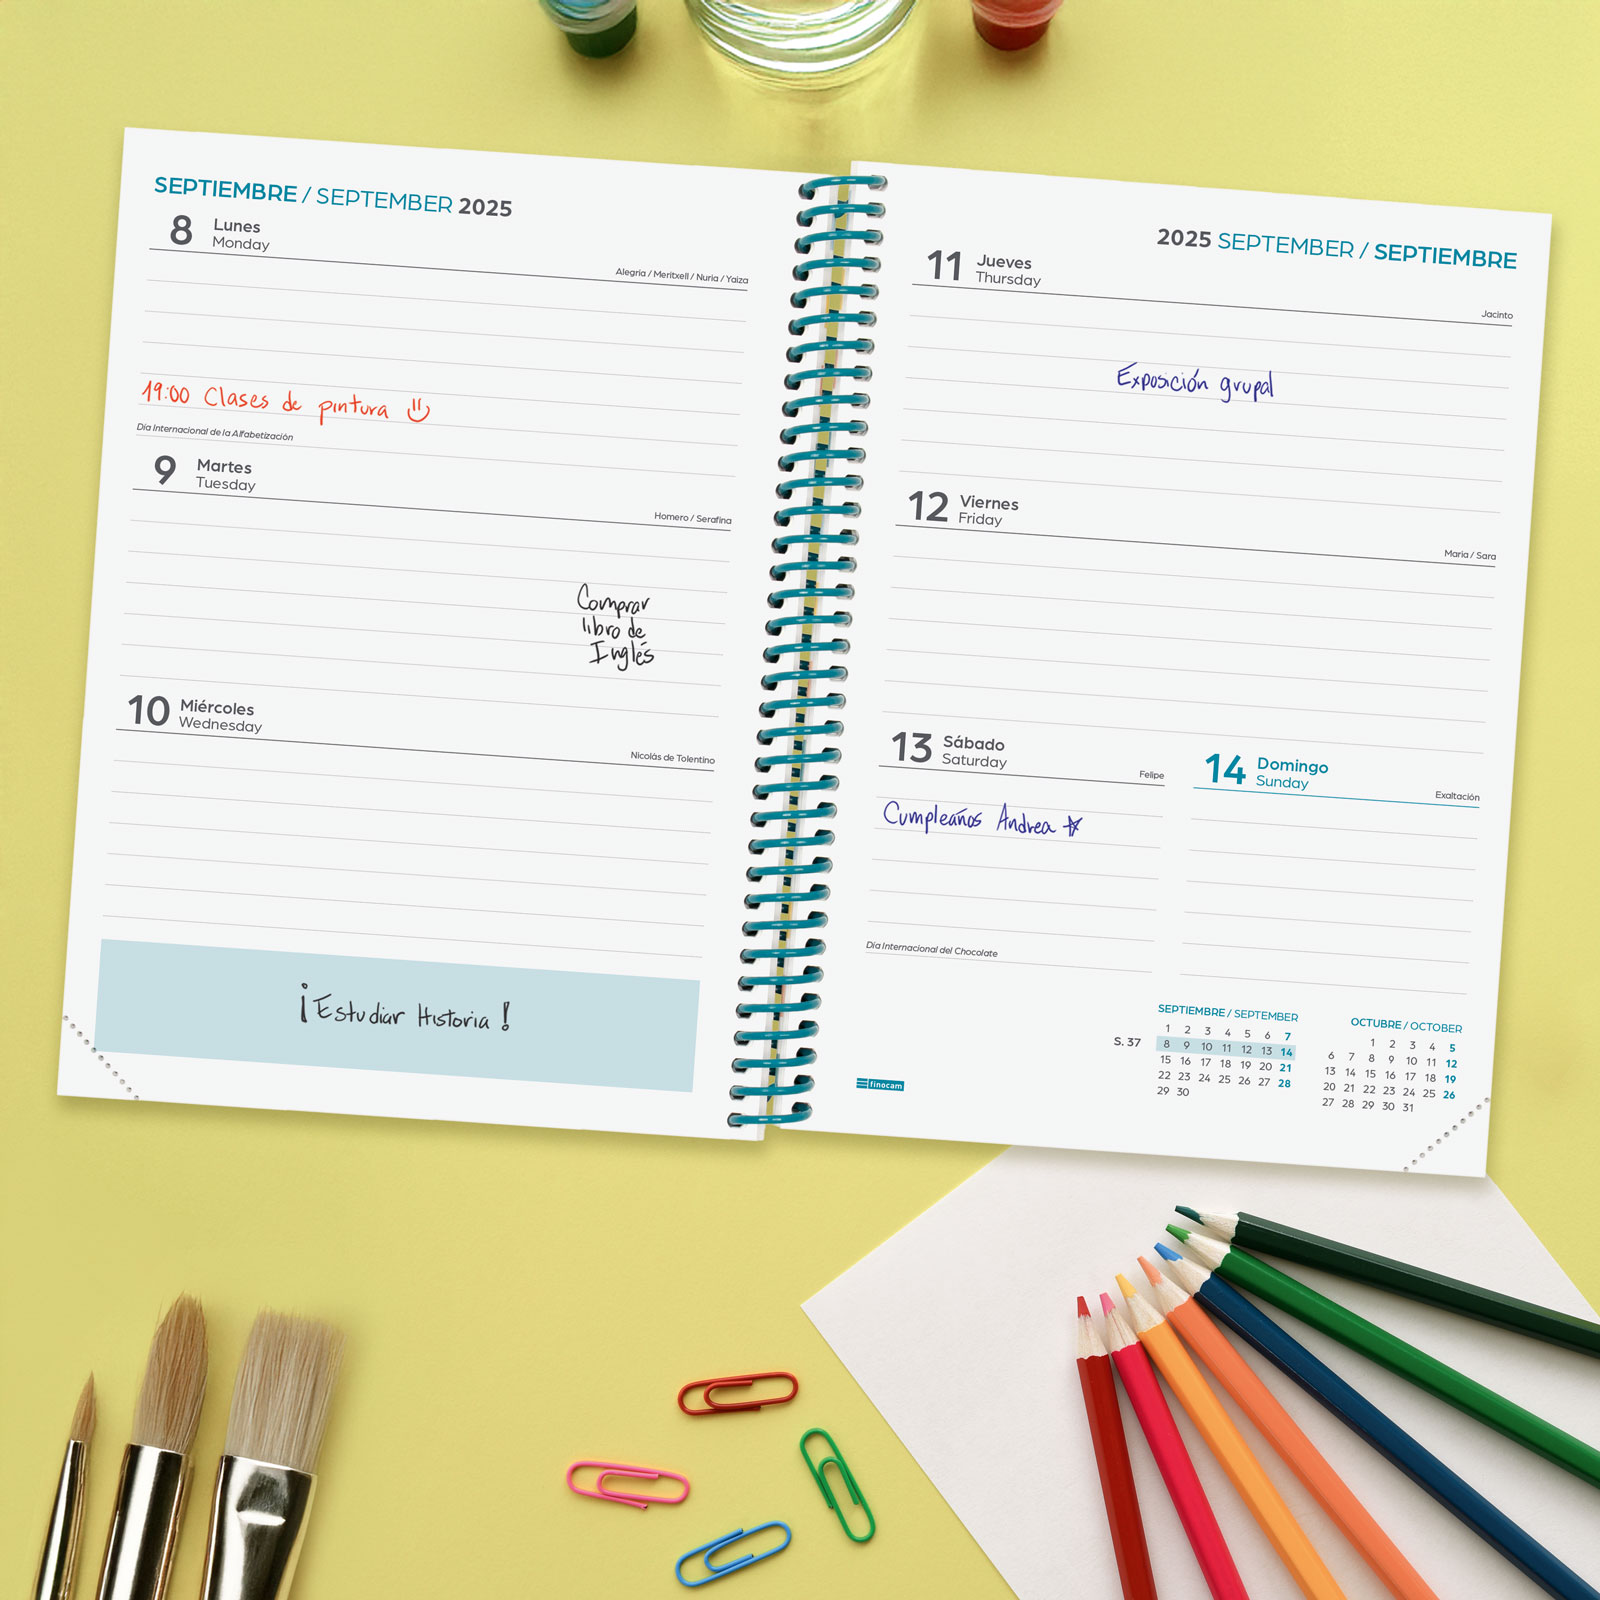 SEPTIEMBRE / SEPTEMBER 2025
8 Lunes
Monday
Alegría / Meritxell / Nuria / Yaiza
19:00 Clases de pintura
Día Internacional de la Alfabetización
9 Martes
Tuesday
Homero / Serafina
Comprar
libro de
Inglés
10 Miércoles
Wednesday
Nicolás de Tolentino
¡Estudiar Historia!
2025 SEPTEMBER / SEPTIEMBRE
11 Jueves
Thursday
Jacinto
Exposición grupal
12 Viernes
Friday
Maria / Sara
13 Sábado
Saturday
Felipe
Cumpleaños Andrea
Día Internacional del Chocolate
14 Domingo
Sunday
Exaltación
finocam
S. 37
SEPTIEMBRE / SEPTEMBER
1 2 3 4 5 6 7
8 9 10 11 12 13 14
15 16 17 18 19 20 21
22 23 24 25 26 27 28
29 30
OCTUBRE / OCTOBER
1 2 3 4 5
6 7 8 9 10 11 12
13 14 15 16 17 18 19
20 21 22 23 24 25 26
27 28 29 30 31